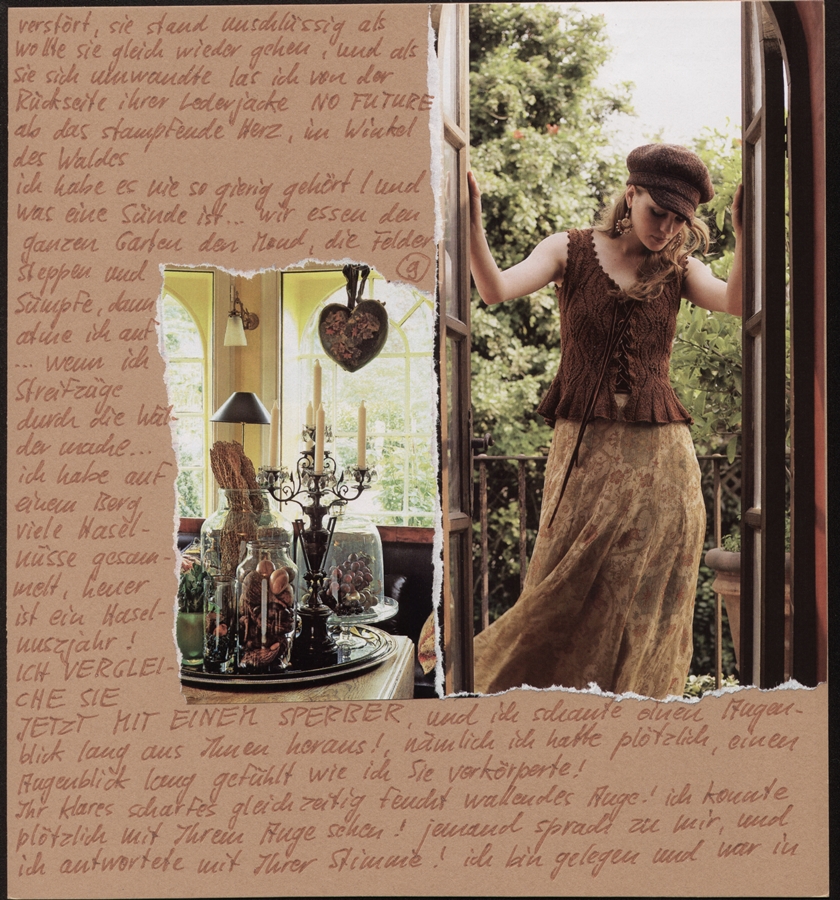 verstört, sie stand unschlüssig als
wolle sie gleich wieder gehen, und als
sie sich umwandte las ich von der
Rückseite ihrer Lederjacke NO FUTURE
ab das stampfende Herz, im Winkel
des Waldes
ich habe es nie so gierig gehört! und
was eine Sünde ist... wir essen den
ganzen Garten den Mond, die Felder
Steppen und
9
Sümpfe, dann
atme ich auf
... wenn ich
Streifzüge
durch die Wäl-
der mache...
ich habe auf
einem Berg
viele Hasel-
nüsse gesam-
melt, heuer
ist ein Hasel-
nuszjahr!
ICH VERGLEI-
CHE SIE
JETZT MIT EINEM SPERBER, und ich schaute einen Augen-
blick lang aus Ihnen heraus!, nämlich ich hatte plötzlich, einen
Augenblick lang gefühlt wie ich Sie verkörperte!
Ihr klares scharfes gleichzeitig feucht wallendes Auge! ich konnte
plötzlich mit Ihrem Auge sehen! jemand sprach zu mir, und
ich antwortete mit Ihrer Stimme! ich bin gelegen und war in